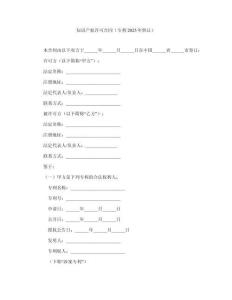 知识产权许可合同（专利2025年签订）
本合同由以下双方于______年______月______日在中国______省______市签订：
许可方（以下简称“甲方”）：
法定名称：
注册地址：
法定代表人/负责人：
联系方式：
被许可方（以下简称“乙方”）：
法定名称：
注册地址：
法定代表人/负责人：
联系方式：
鉴于：
（一）甲方是下列专利的合法权利人：
专利名称：
专利号：
申请日：______年______月______日
公开日：______年______月______日
授权公告日：______年______月______日
发明人：
专利权人：
（下称“涉案专利”）